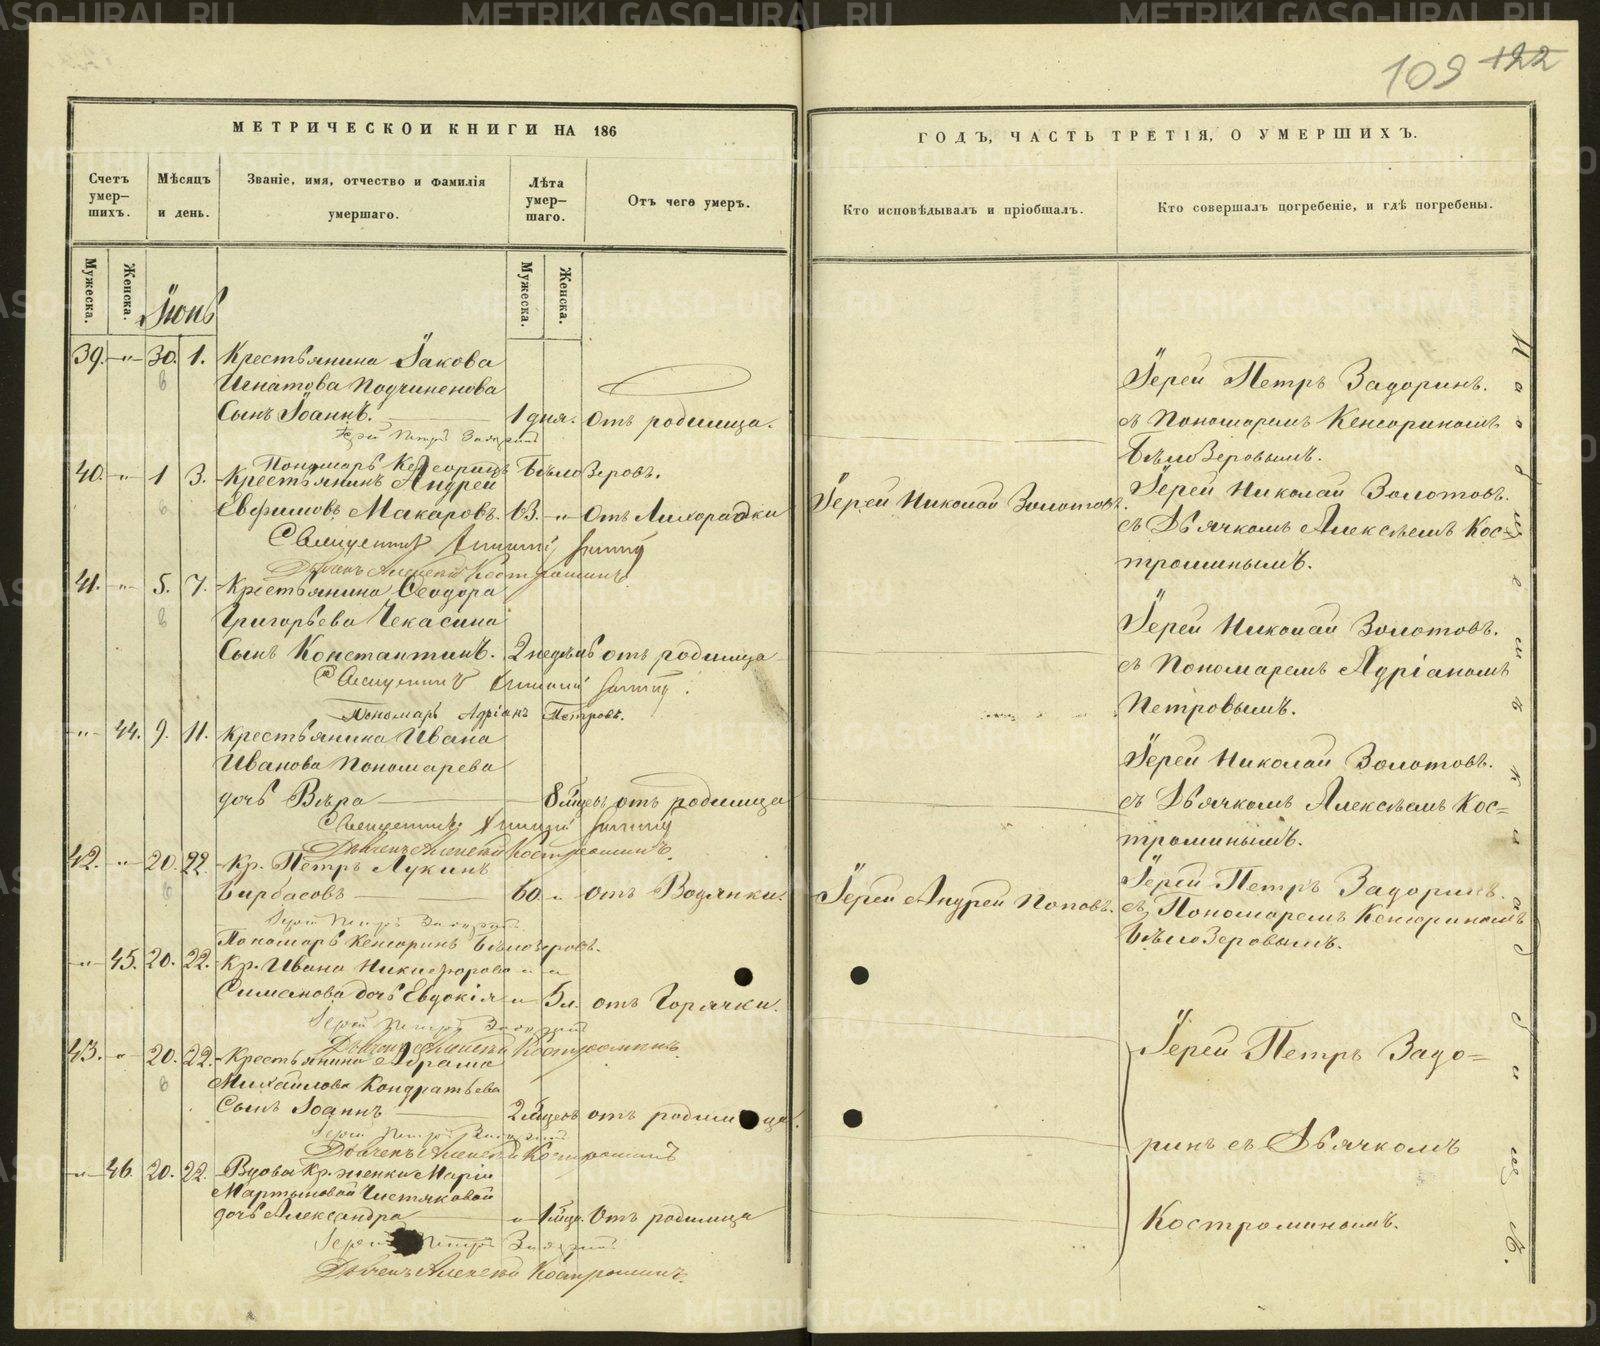 109 122
МЕТРИЧЕСКОЙ КНИГИ НА 186
ГОДЪ, ЧАСТЬ ТРЕТІЯ, О УМЕРШИХЪ.
Счетъ умер-
шихъ.
Мѣсяцъ
и день.
Званіе, имя, отчество и фамилія
умершаго.
Лѣта
умер-
шаго.
Отъ чего умеръ.
Кто исповѣдывалъ и пріобщалъ.
Кто совершалъ погребеніе, и гдѣ погребены.
Мужеска.
Женска.
Іюнь
Мужеска.
Женска.
39. -"- 30. 1. Крестьянина Іакова
Игнатова Подчиненова
Сынъ Іоаннъ. 1 дня. отъ родимца.
Іерей Петръ Задоринъ
Пономарь Кенсоринъ Бѣлозеровъ.
Іерей Петръ Задоринъ.
съ Пономаремъ Кенсориномъ
Бѣлозеровымъ.
40. -"- 1 3. Крестьянинъ Андрей
Евфимовъ Макаровъ. 63. -"- отъ Лихорадки
Священникъ
Дьячекъ Алексѣй Костроминъ
Іерей Николай Золотовъ.
Іерей Николай Золотовъ.
съ Дьячкомъ Алексѣемъ Кос-
троминымъ.
41. -"- 5. 7. Крестьянина Ѳеодора
Григорьева Чекасина
Сынъ Константинъ. 2 недѣль отъ родимца
Священникъ
Пономарь Адріанъ Петровъ.
Іерей Николай Золотовъ.
съ Пономаремъ Адріаномъ
Петровымъ.
-"- 44. 9. 11. Крестьянина Ивана
Иванова Пономарева
дочь Вѣра 8 мѣсяц. отъ родимца
Священникъ
Дьячекъ Алексѣй Костроминъ.
Іерей Николай Золотовъ.
съ Дьячкомъ Алексѣемъ Кос=
троминымъ.
42. -"- 20. 22. Кр. Петръ Лукинъ
Бирбасовъ 60 -"- отъ Водянки.
Іерей Петръ Задоринъ
Пономарь Кенсоринъ Бѣлозеровъ.
Іерей Андрей Поповъ.
Іерей Петръ Задоринъ.
съ Пономаремъ Кенсориномъ
Бѣлозеровымъ.
-"- 45. 20. 22. Кр. Ивана Никифорова
Симанова дочь Евдокія -"- 5 л. отъ Горячки.
Іерей Петръ Задоринъ
Дьячекъ Алексѣй Костроминъ.
43. -"- 20. 22. Крестьянина Абрама
Михайлова Кондратьева
Сынъ Іоаннъ 2 мѣсяц. отъ родимца.
Іерей Петръ Задоринъ
Дьячекъ Алексѣй Костроминъ
-"- 46. 20. 22. Вдовы Кр. женки Маріи
Мартыновой Чистяковой
дочь Александра -"- 1 мѣсяц. отъ родимца
Іерей Петръ Задоринъ
Дьячекъ Алексѣй Костроминъ.
Іерей Петръ Задо=
ринъ съ Дьячкомъ
Костроминымъ.
METRIKI.GASO-URAL.RU